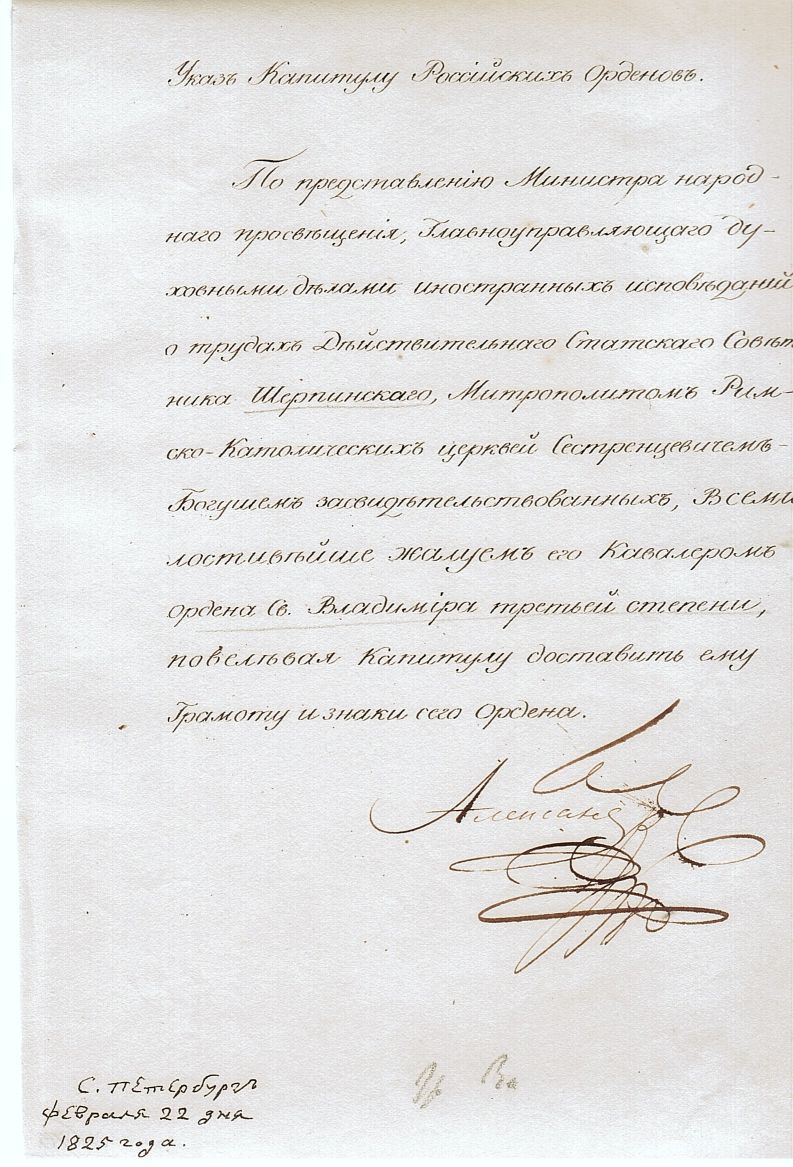 Указъ Капитулу Россійскихъ Орденовъ.
По представленію Министра народ-
наго просвѣщенія, Главноуправляющаго ду-
ховными дѣлами иностранныхъ исповѣданій
о трудахъ Дѣйствительнаго Статскаго Совѣт
ника Шерпинскаго, Митрополитомъ Рим-
ско-Католическихъ церквей Сестренцевичемъ-
Богушемъ засвидѣтельствованныхъ, Всеми
лостивѣйше жалуемъ его Кавалеромъ
ордена Св. Владиміра третьей степени,
повелѣвая Капитулу доставить ему
Грамоту и знаки сего Ордена.
Александръ
С. Петербургъ
Февраля 22 дня
1825 года.